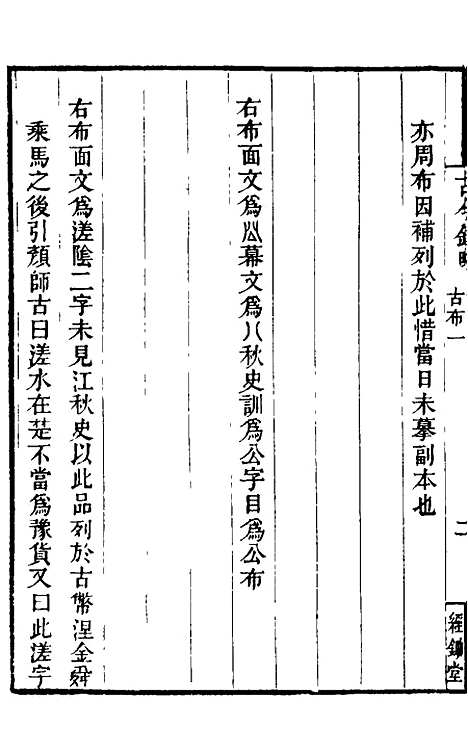 古今錢略 古布一 二 經鉏堂
亦周布因補列於此惜當日未摹副本也
右布面文爲㕣幕文爲八秋史訓爲公字目爲公布
右布面文爲溠陰二字未見江秋史以此品列於古幣涅金舜
乘馬之後引顏師古曰溠水在楚不當爲豫貨又曰此溠字